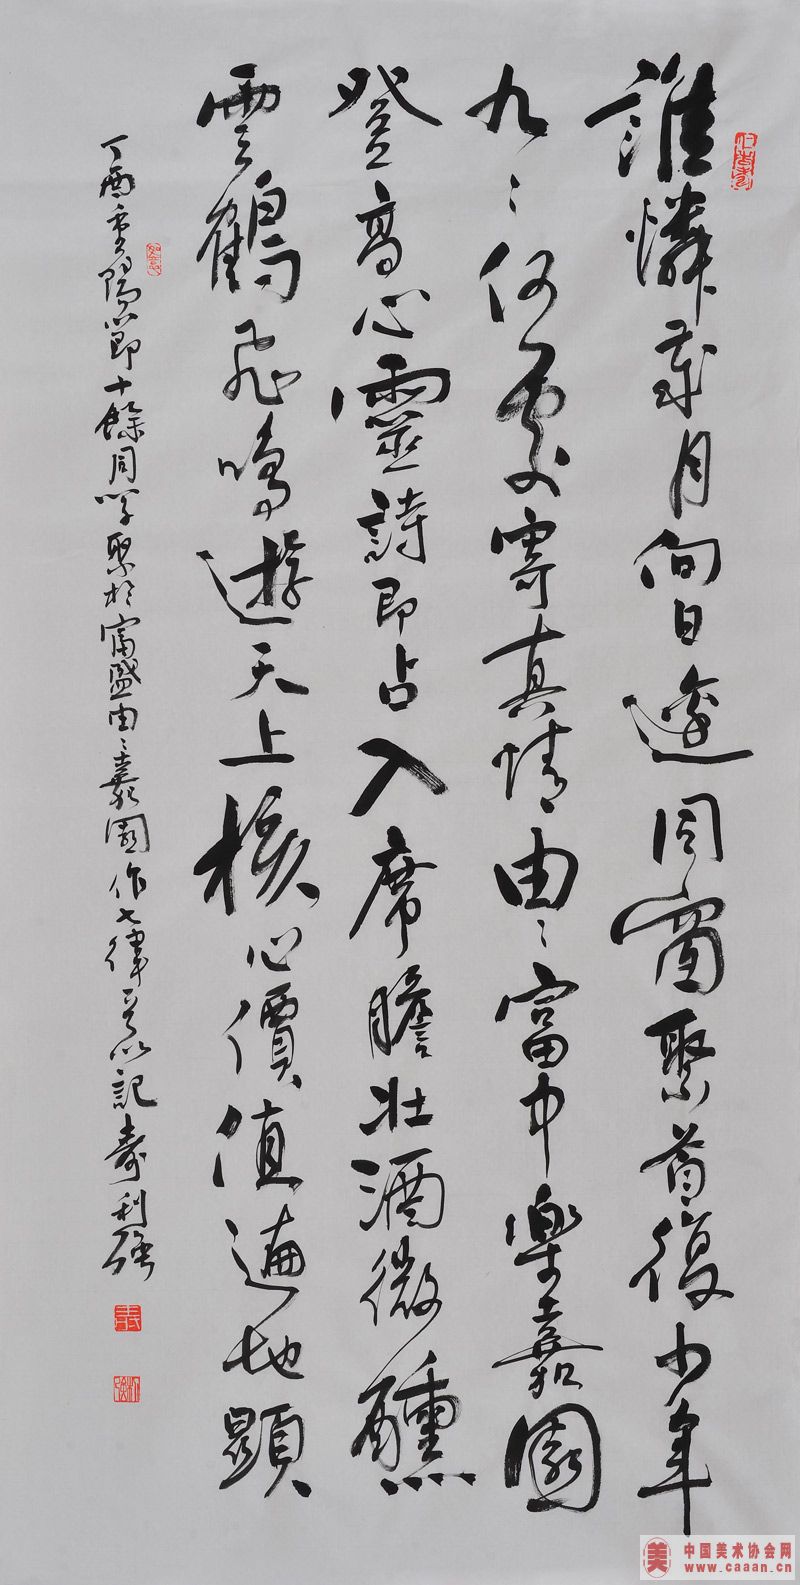 誰憐歲月向日邊同窗聚首復少年
九〻何處寄真情由〻富中樂嘉園
登高心靈詩即占入席膽壯酒微醺
雲鶴飛鳴遊天上核心價值遍地顯
丁酉重陽節十餘同學聚於富盛由〻嘉園作七律以記壽利強
美
中国美术协会网
www.caaan.cn